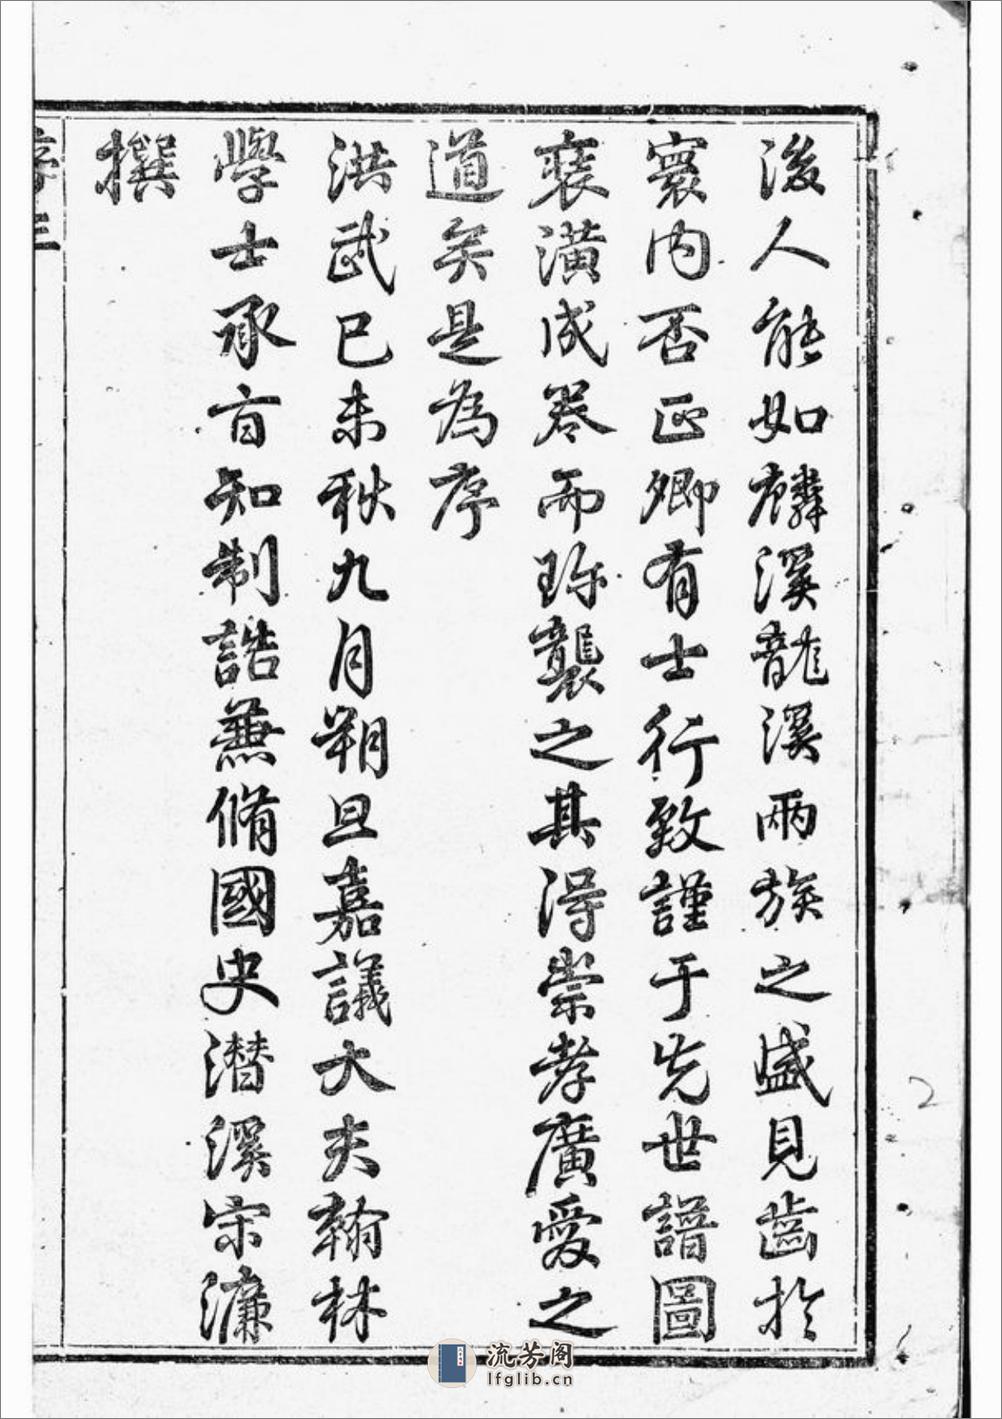 後人能如麟溪龍溪兩族之盛見齒於
寰内否正卿有士行致謹于先世譜圖
裒潢成卷而珎襲之其得崇孝廣愛之
道矣是為序
洪武已未秋九月朔旦嘉議大夫翰林
學士承旨知制誥兼脩國史潛溪宋濂
撰
序 三
2
流芳阁
lfglib.cn